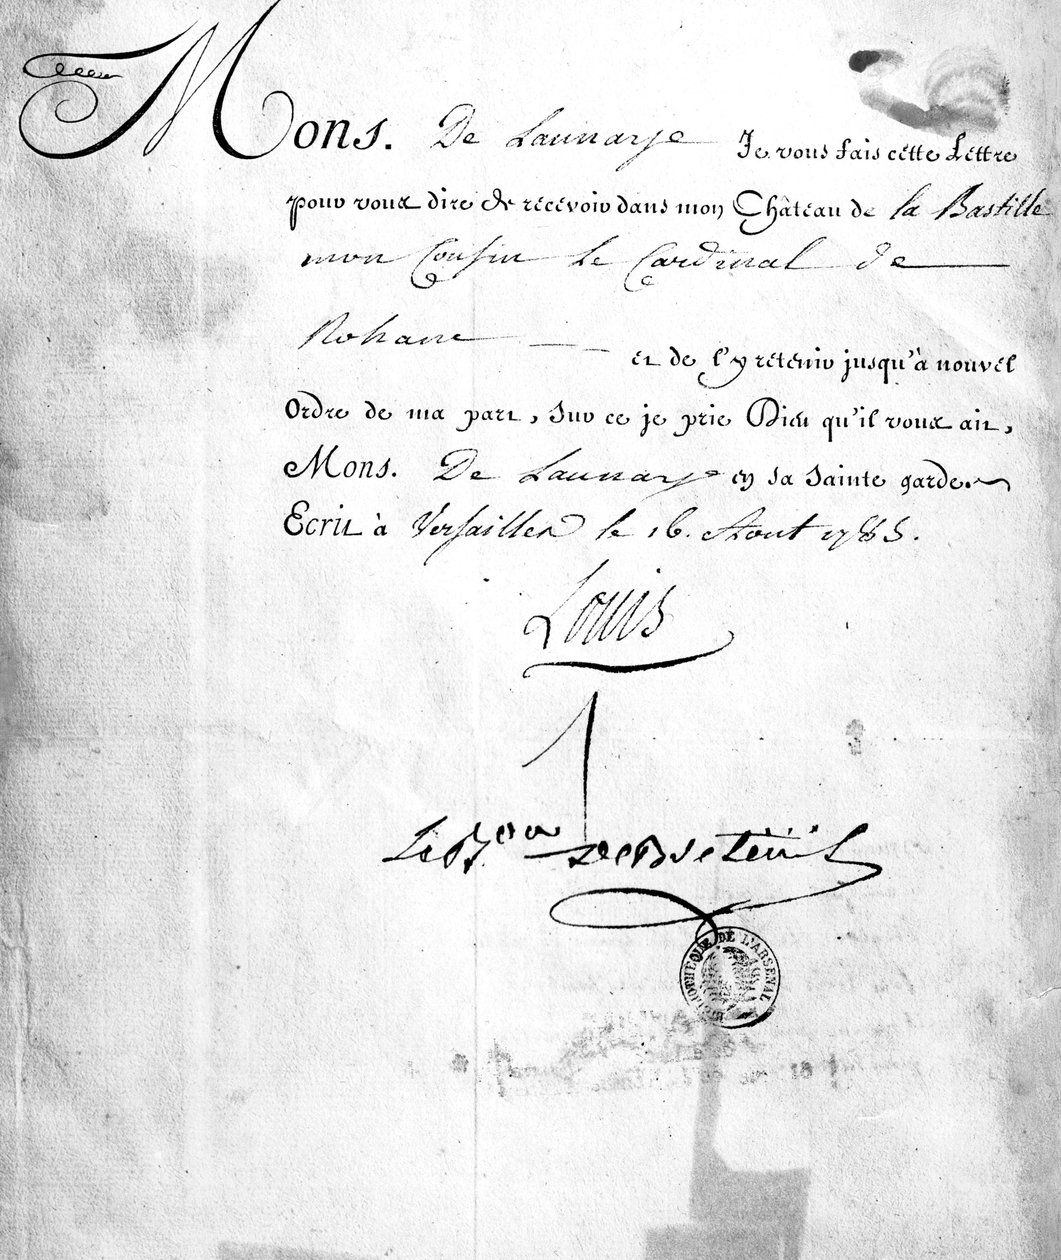 Mons. De Launarye Je vous fais cette Lettre
pour vous dire de recevoir dans mon Château de la Bastille
mon Cousin le Cardinal de
Rohane et de l'y retenir jusqu'à nouvel
Ordre de ma part, Sur ce je prie Dieu qu'il vous ait,
Mons. De Launarye en sa Sainte garde.
Ecrit à Versailles le 16. Aout 1785.
Louis
Le Bon De Breteüil
BIBLIOTHEQUE DE L'ARSENAL